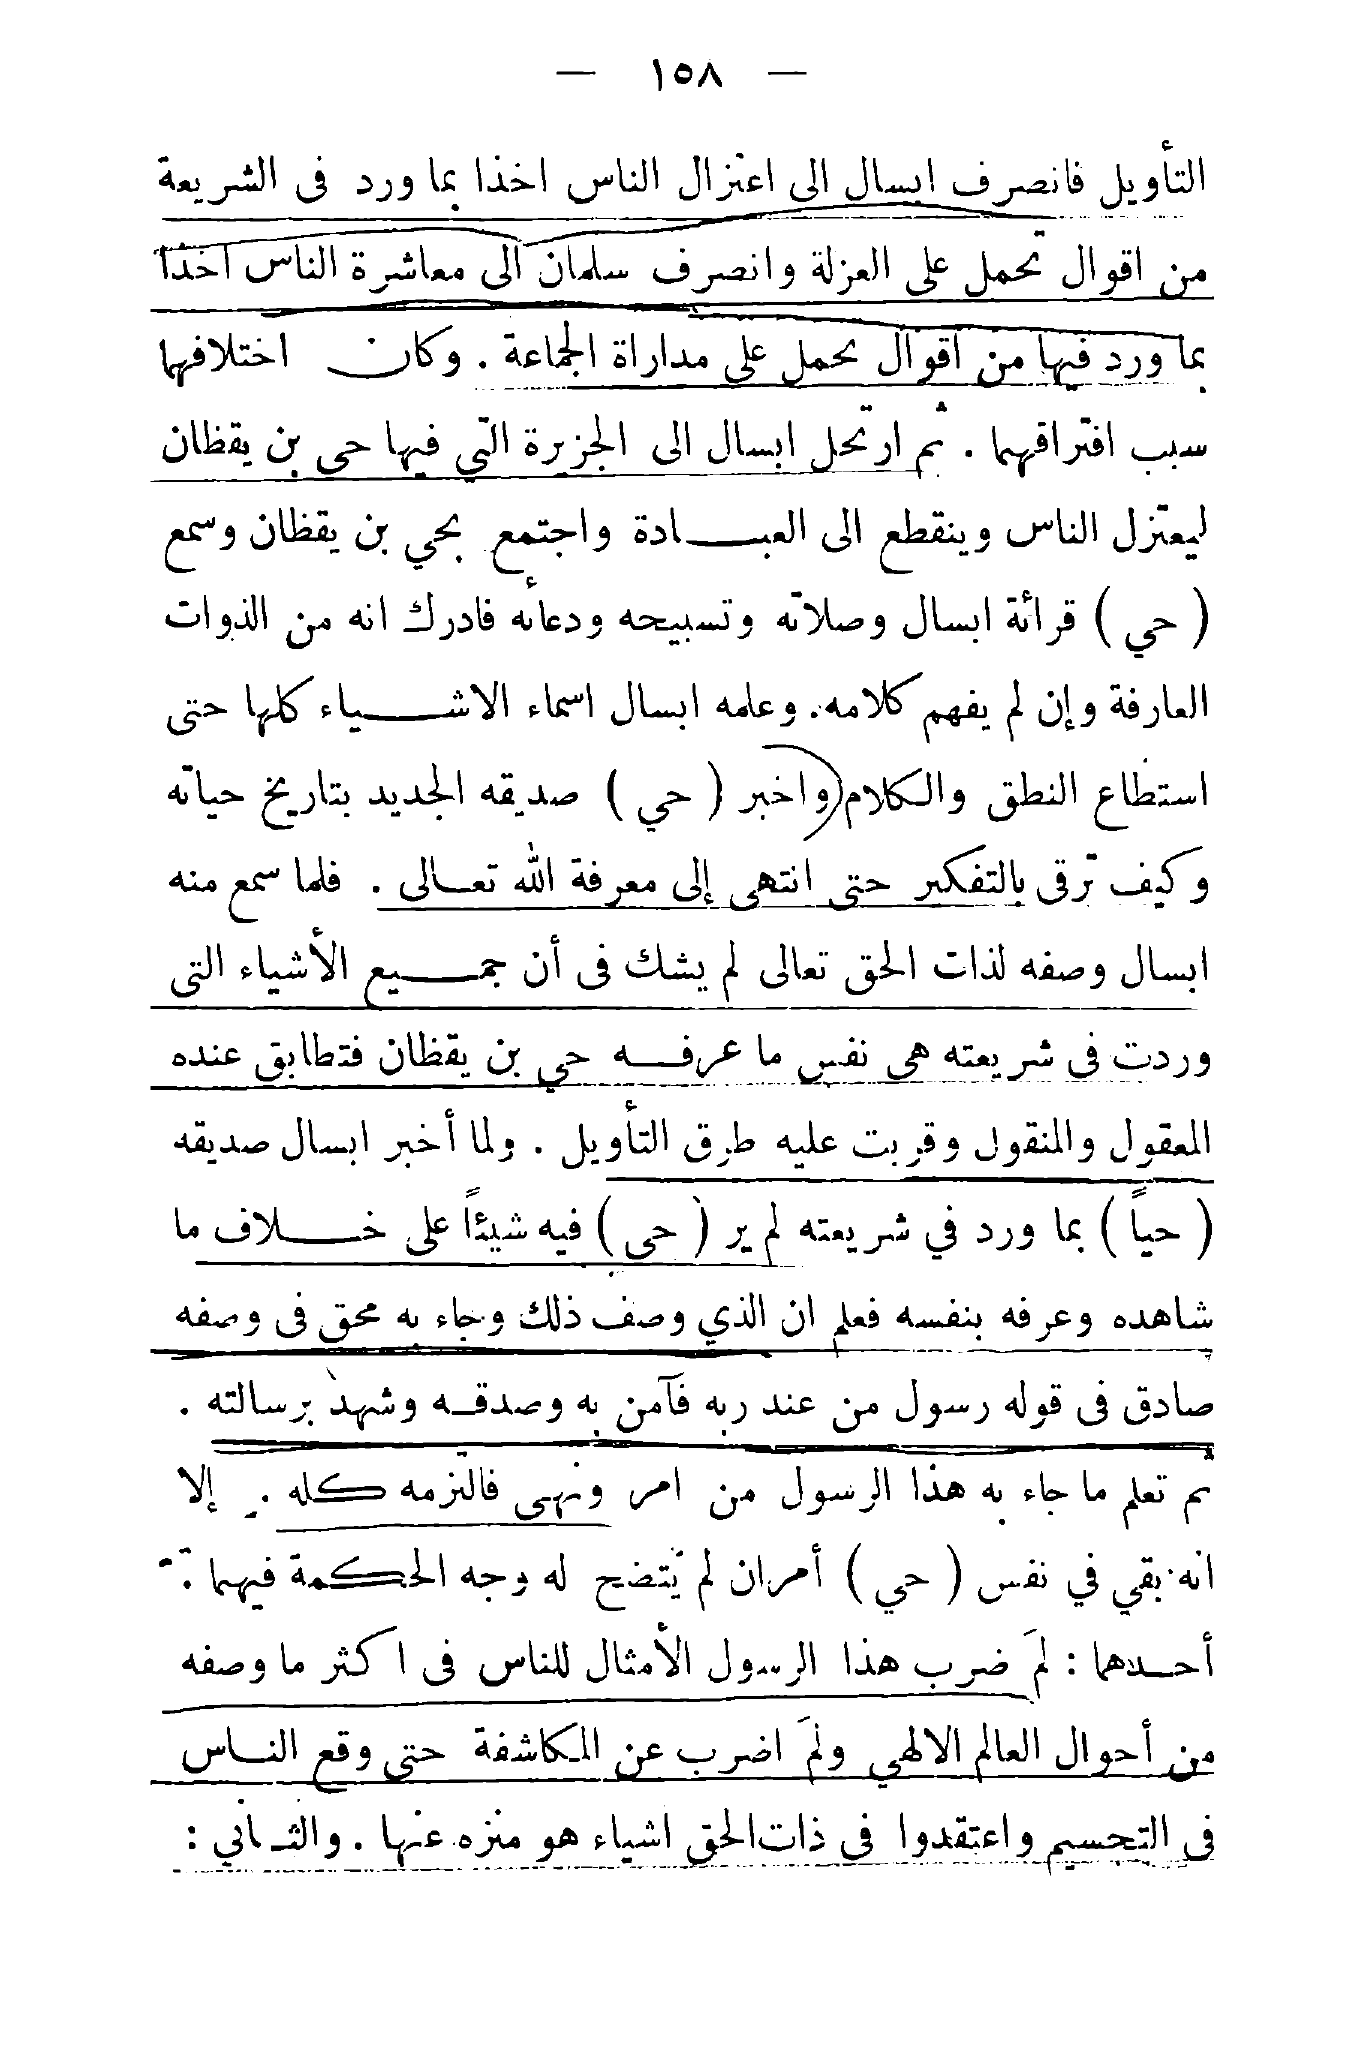 — ١٥٨ —
التأويل فانصرف ابسال الى اعتزال الناس اخذا بما ورد فى الشريعة
من اقوال تحمل على العزلة وانصرف سلمان الى معاشرة الناس اخذا
بما ورد فيها من اقوال تحمل على مداراة الجماعة . وكان اختلافهما
سبب افتراقهما . ثم ارتحل ابسال الى الجزيرة التي فيها حي بن يقظان
ليعتزل الناس وينقطع الى العبادة واجتمع بحي بن يقظان وسمع
( حي ) قرائة ابسال وصلاته وتسبيحه ودعائه فادرك انه من الذوات
العارفة وإن لم يفهم كلامه . وعلمه ابسال اسماء الاشياء كلها حتى
استطاع النطق والكلام واخبر ( حي ) صديقه الجديد بتاريخ حياته
وكيف ترقى بالتفكير حتى انتهى إلى معرفة الله تعالى . فلما سمع منه
ابسال وصفه لذات الحق تعالى لم يشك فى أن جميع الأشياء التى
وردت فى شريعته هى نفس ما عرفه حي بن يقظان فتطابق عنده
المعقول والمنقول وقربت عليه طرق التأويل . ولما أخبر ابسال صديقه
( حياً ) بما ورد في شريعته لم ير ( حى ) فيه شيئاً على خلاف ما
شاهده وعرفه بنفسه فعلم ان الذي وصف ذلك وجاء به محق فى وصفه
صادق فى قوله رسول من عند ربه فآمن به وصدقه وشهد برسالته .
ثم تعلم ما جاء به هذا الرسول من امر ونهى فالتزمه كله . إلا
انه بقي في نفس ( حي ) أمران لم يتضح له وجه الحكمة فيهما :
أحدهما : لمَ ضرب هذا الرسول الأمثال للناس فى اكثر ما وصفه
من أحوال العالم الالهي ولمَ اضرب عن المكاشفة حتى وقع الناس
فى التجسيم واعتقدوا فى ذات الحق اشياء هو منزه عنها . والثاني :